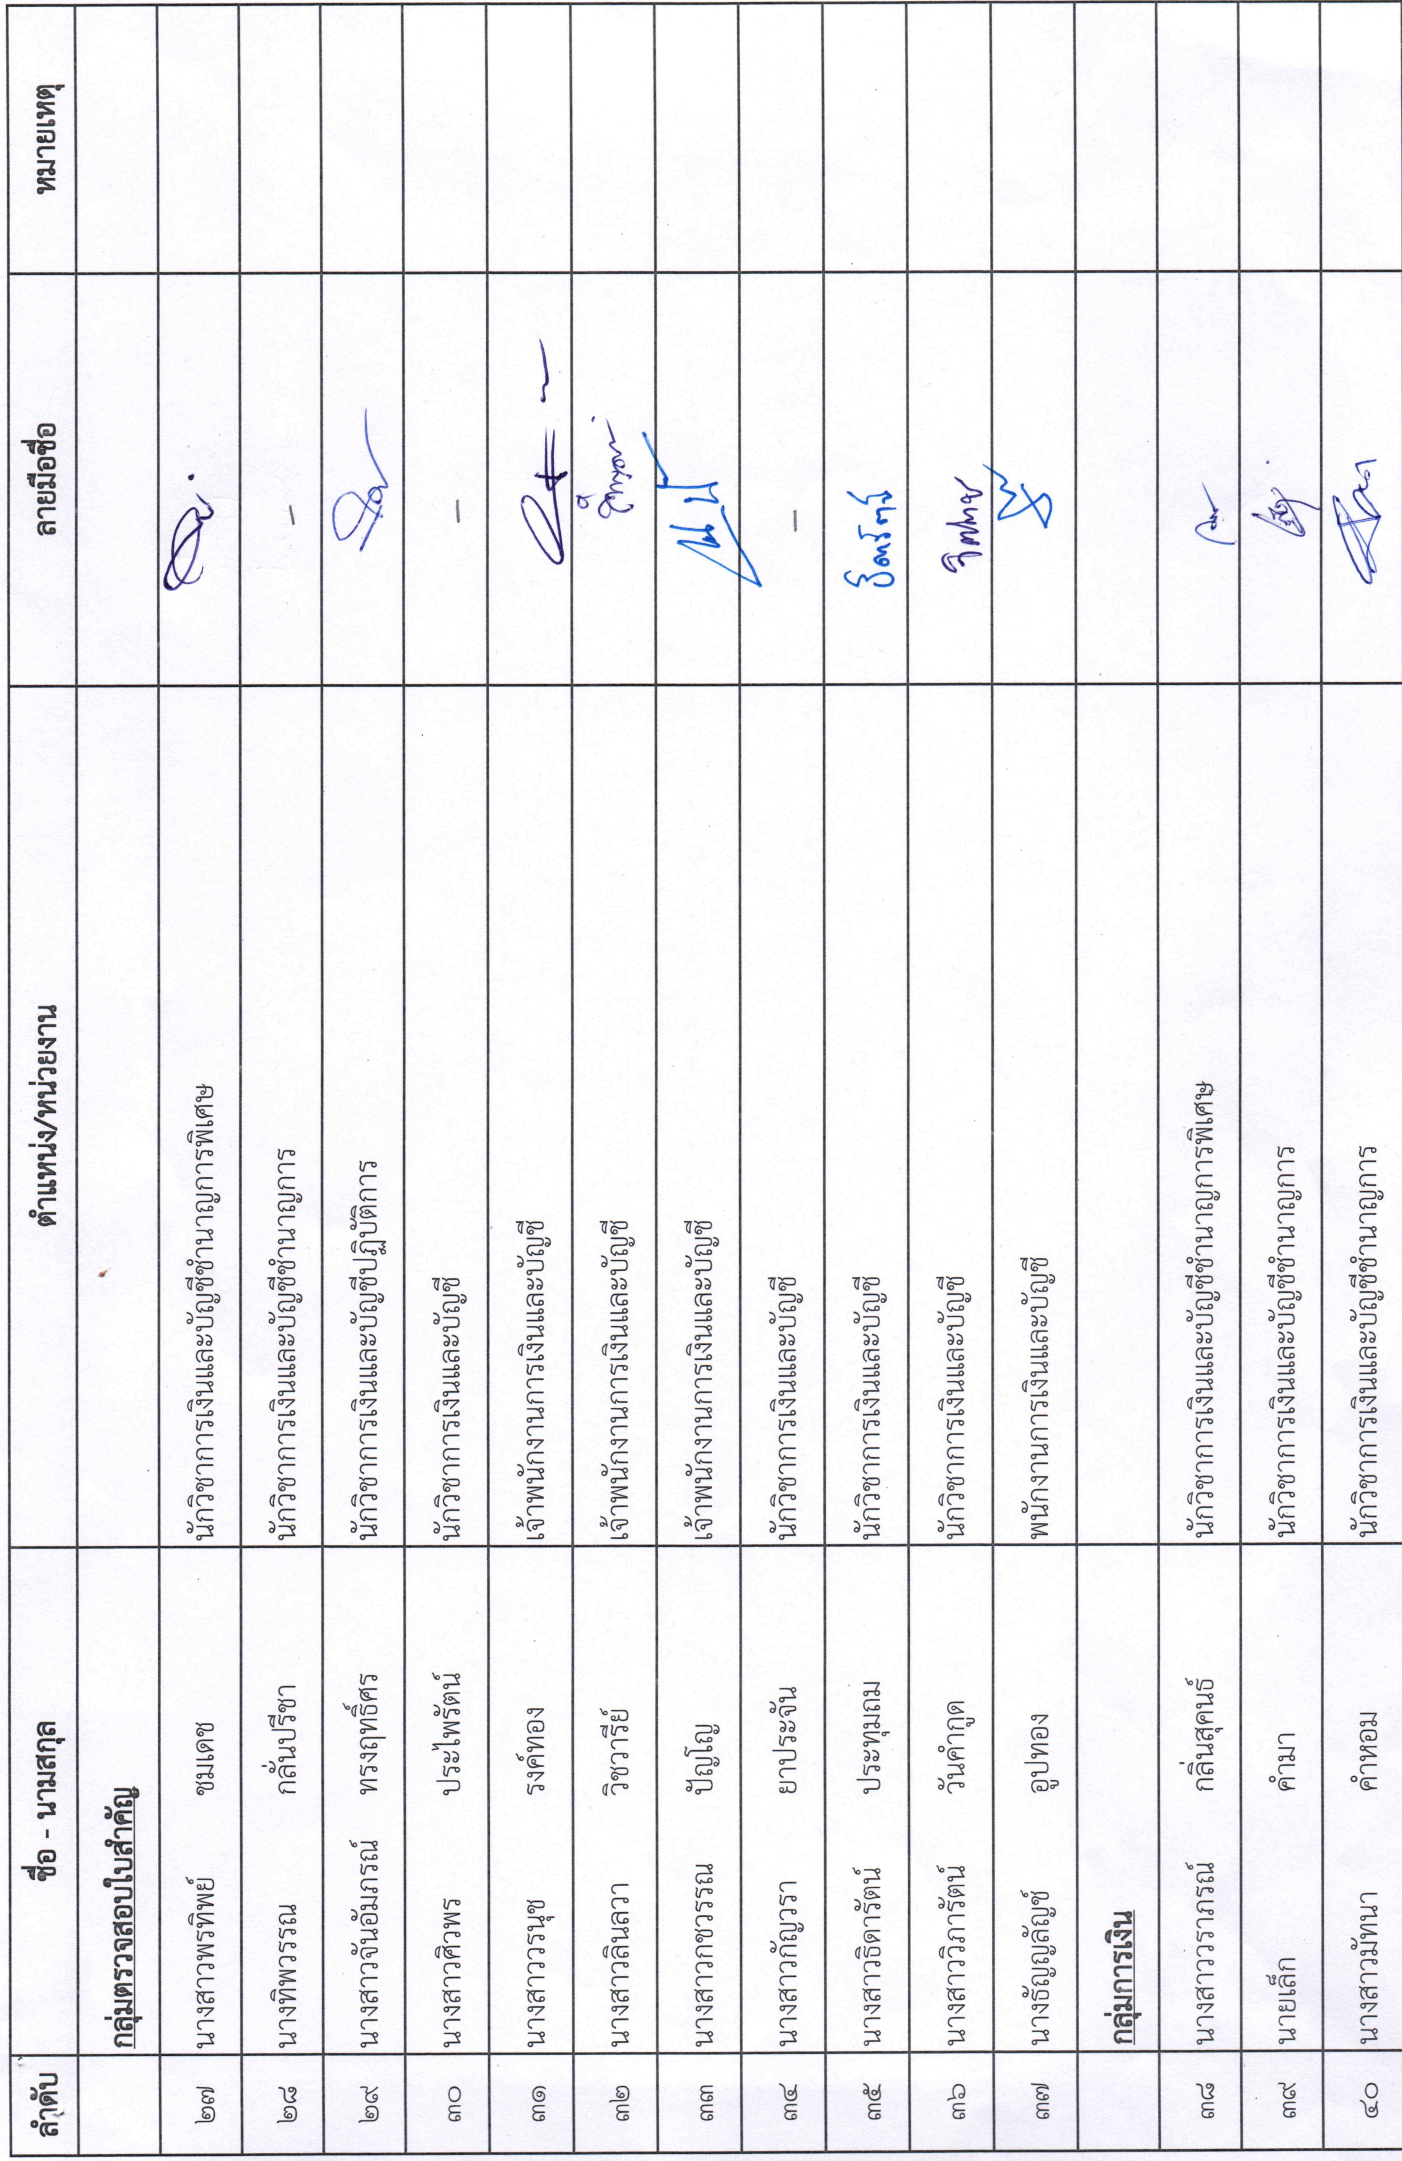 ลำดับ ชื่อ - นามสกุล ตำแหน่ง/หน่วยงาน ลายมือชื่อ หมายเหตุ
กลุ่มตรวจสอบใบสำคัญ
๒๗ นางสาวพรทิพย์ ชมเดช นักวิชาการเงินและบัญชีชำนาญการพิเศษ
๒๘ นางทิพวรรณ กลั่นปรีชา นักวิชาการเงินและบัญชีชำนาญการ -
๒๙ นางสาวจันอัมภรณ์ ทรงฤทธิ์ศร นักวิชาการเงินและบัญชีปฏิบัติการ
๓๐ นางสาวศิวพร ประไพรัตน์ นักวิชาการเงินและบัญชี -
๓๑ นางสาววรนุช รงค์ทอง เจ้าพนักงานการเงินและบัญชี
๓๒ นางสาวลินลวา วิชวารีย์ เจ้าพนักงานการเงินและบัญชี
๓๓ นางสาวกชวรรณ ปัญโญ เจ้าพนักงานการเงินและบัญชี
๓๔ นางสาวกัญวรา ยาประจัน นักวิชาการเงินและบัญชี -
๓๕ นางสาวธิดารัตน์ ประทุมถม นักวิชาการเงินและบัญชี ธิดารัตน์
๓๖ นางสาววิภารัตน์ วันคำกูด นักวิชาการเงินและบัญชี
๓๗ นางธัญญลัญช์ อูปทอง พนักงานการเงินและบัญชี
กลุ่มการเงิน
๓๘ นางสาววราภรณ์ กลิ่นสุคนธ์ นักวิชาการเงินและบัญชีชำนาญการพิเศษ
๓๙ นายเล็ก คำมา นักวิชาการเงินและบัญชีชำนาญการ
๔๐ นางสาวมัทนา คำหอม นักวิชาการเงินและบัญชีชำนาญการ